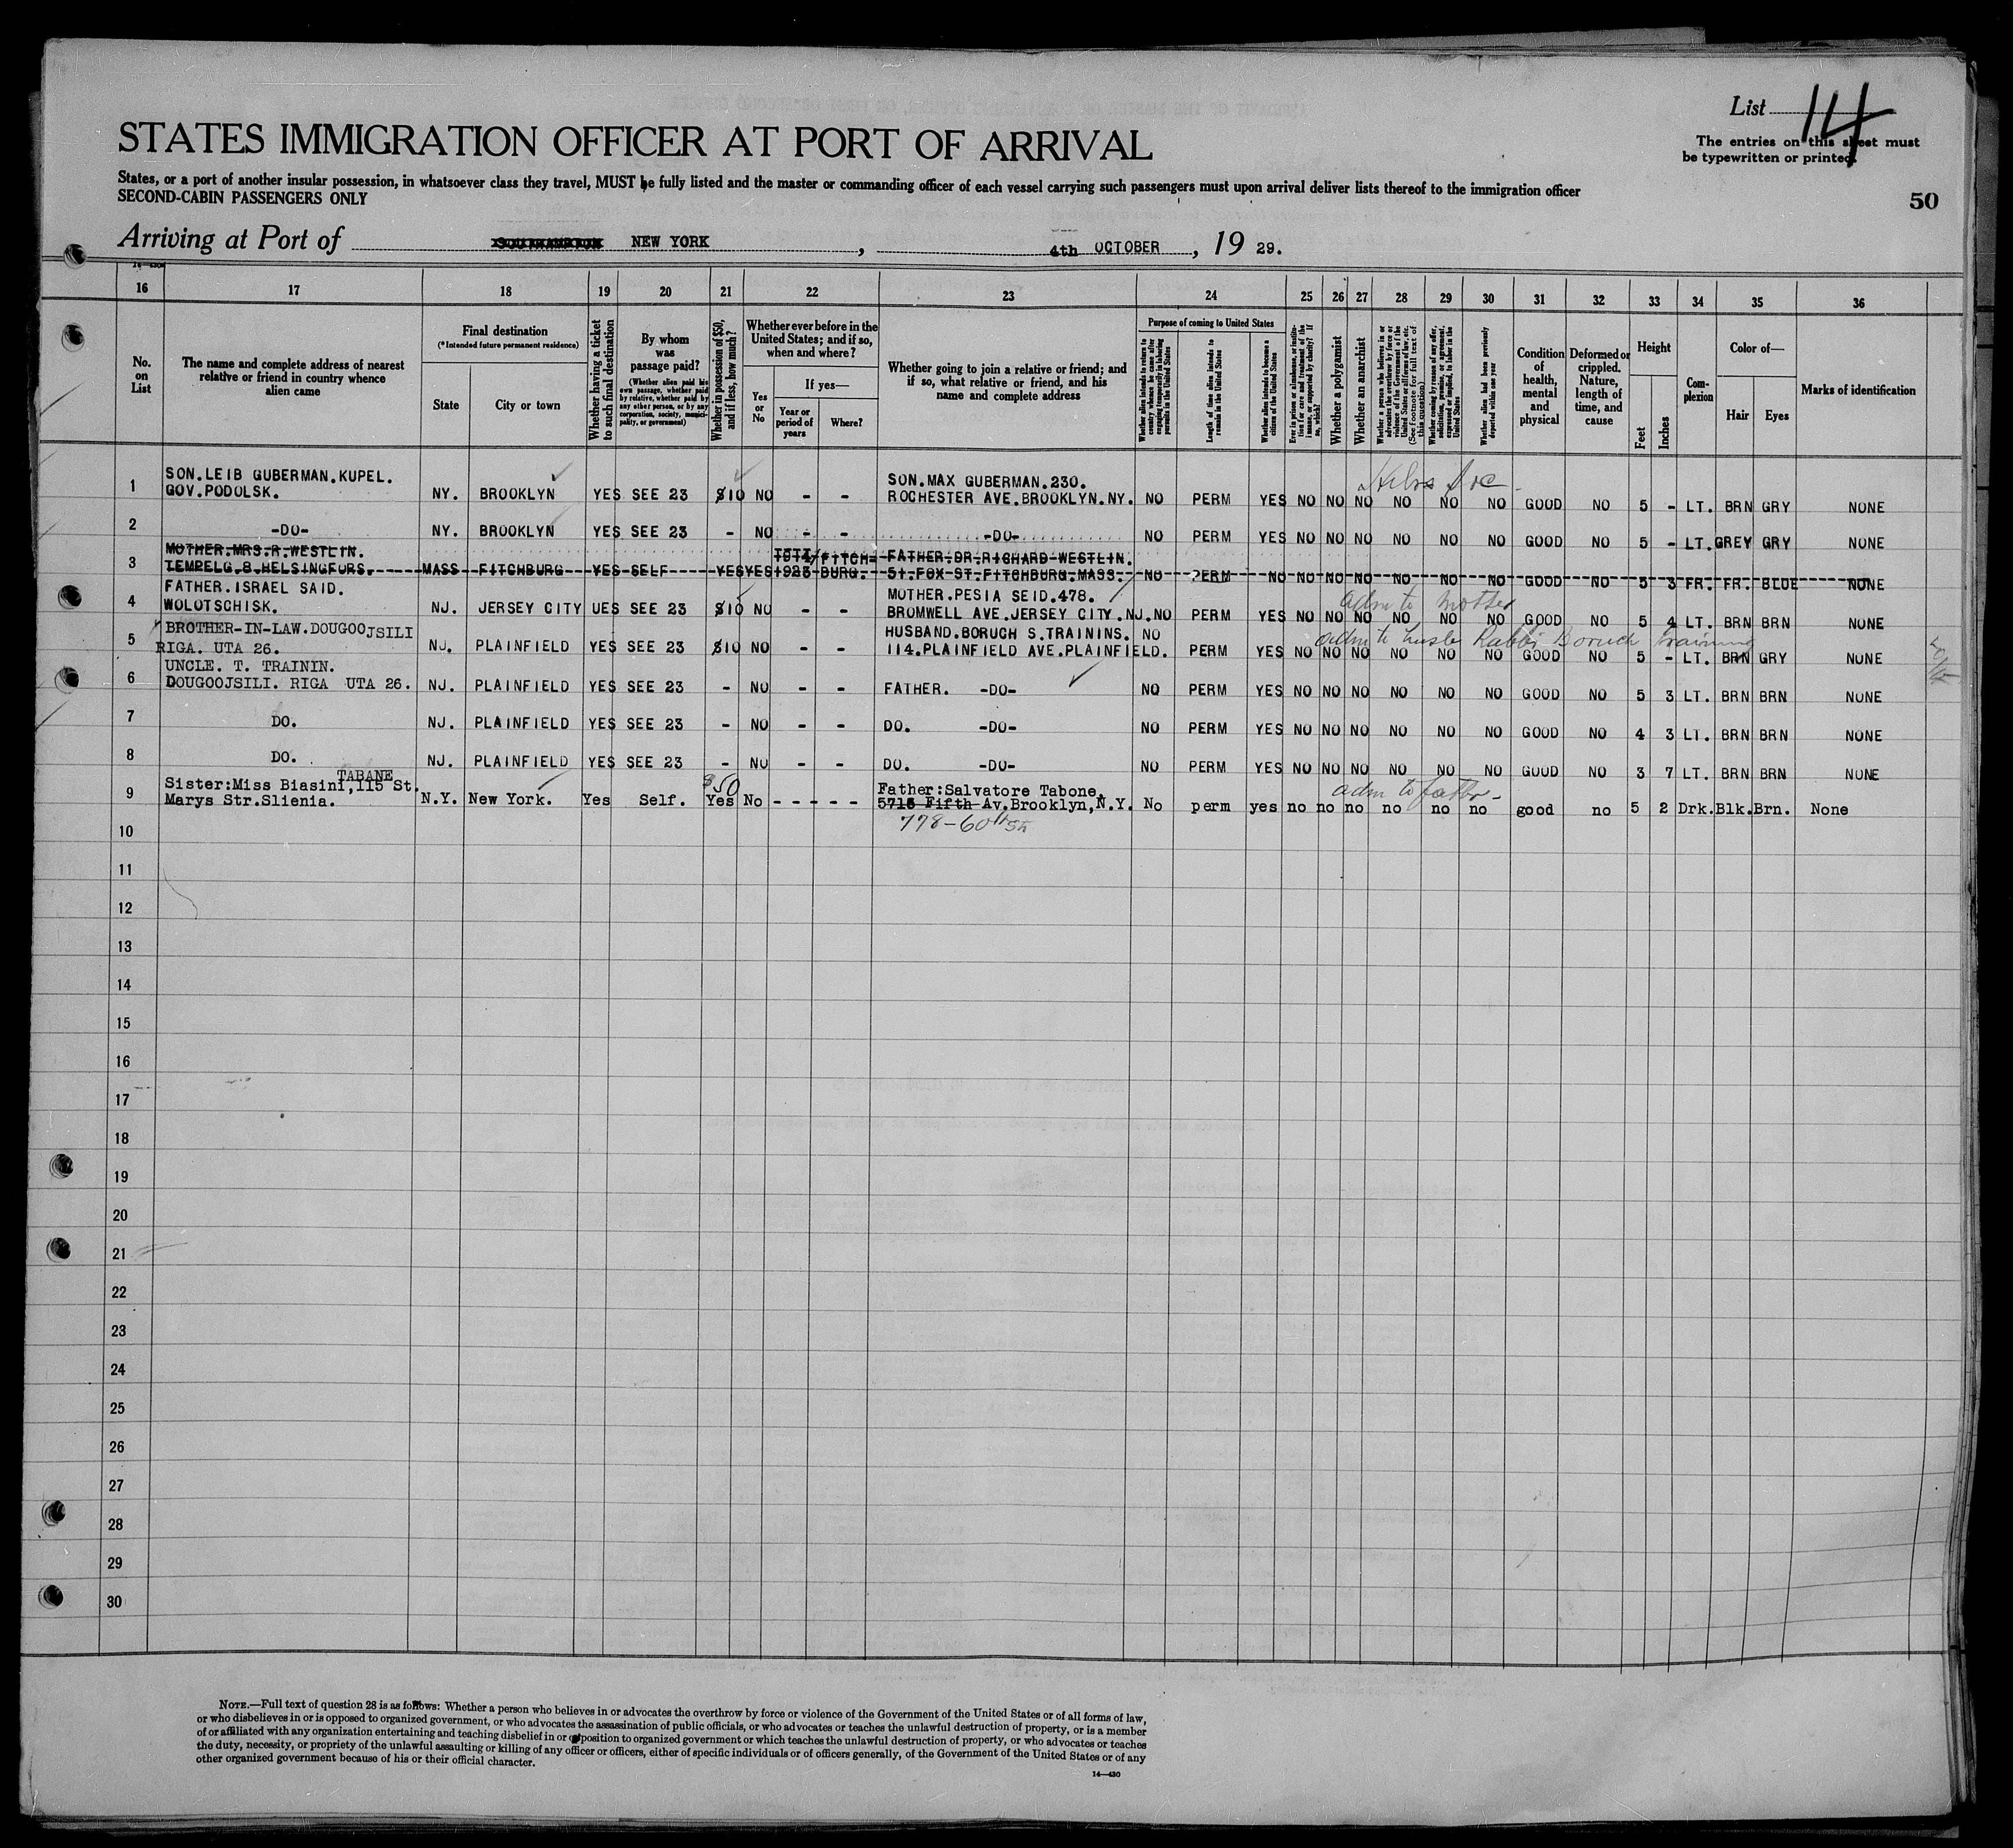 List 14
STATES IMMIGRATION OFFICER AT PORT OF ARRIVAL
The entries on this sheet must
be typewritten or printed.
States, or a port of another insular possession, in whatsoever class they travel, MUST be fully listed and the master or commanding officer of each vessel carrying such passengers must upon arrival deliver lists thereof to the immigration officer
SECOND-CABIN PASSENGERS ONLY
50
Arriving at Port of SOUTHAMPTON NEW YORK, 4th OCTOBER, 19 29.
16 17 18 19 20 21 22 23 24 25 26 27 28 29 30 31 32 33 34 35 36
No. on List
The name and complete address of nearest relative or friend in country whence alien came
Final destination
(*Intended future permanent residence)
State
City or town
Whether having a ticket to such final destination
By whom was passage paid?
(Whether alien paid his own passage, whether paid by relative, whether paid by any other person, or by any corporation, society, municipality, or government)
Whether in possession of $50, and if less, how much?
Whether ever before in the United States; and if so, when and where?
Yes or No
If yes—
Year or period of years
Where?
Whether going to join a relative or friend; and if so, what relative or friend, and his name and complete address
Purpose of coming to United States
Whether alien intends to return to country whence he came after engaging temporarily in laboring pursuits in the United States
Length of time alien intends to remain in the United States
Whether alien intends to become a citizen of the United States
Ever in prison or almshouse, or institution for care and treatment of the insane, or supported by charity? If so, which?
Whether a polygamist
Whether an anarchist
Whether a person who believes in or advocates the overthrow by force or violence of the Government of the United States or all forms of law, etc. (See footnote for full text of this question)
Whether coming by reason of any offer, solicitation, promise, or agreement, expressed or implied, to labor in the United States
Whether alien had been previously deported within one year
Condition of health, mental and physical
Deformed or crippled. Nature, length of time, and cause
Height
Feet
Inches
Complexion
Color of—
Hair
Eyes
Marks of identification
1 SON.LEIB GUBERMAN.KUPEL. SON.MAX GUBERMAN.230.
GOV.PODOLSK. NY. BROOKLYN YES SEE 23 $10 NO - - ROCHESTER AVE.BROOKLYN.NY. NO PERM YES NO NO NO NO NO NO GOOD NO 5 - LT. BRN GRY NONE
2 -DO- NY. BROOKLYN YES SEE 23 - NO - - -DO- NO PERM YES NO NO NO NO NO NO GOOD NO 5 - LT. GREY GRY NONE
3 MOTHER.MRS.R.WESTLIN. 1914/ FITCH- FATHER.DR.RICHARD WESTLIN.
TEMPELG.8.HELSINGFORS. MASS FITCHBURG YES SELF YES YES 1923 BURG. 51.FOX ST.FITCHBURG.MASS. NO PERM NO NO NO NO NO NO NO GOOD NO 5 3 FR. FR. BLUE NONE
4 FATHER.ISRAEL SAID. MOTHER.PESIA SEID.478. adm to mother
WOLOTSCHISK. NJ. JERSEY CITY UES SEE 23 $10 NO - - BROMWELL AVE.JERSEY CITY.NJ. NO PERM YES NO NO NO NO NO NO GOOD NO 5 4 LT. BRN BRN NONE
5 BROTHER-IN-LAW.DOUGOOJSILI HUSBAND.BORUCH S.TRAININS. NO adm to Rabbi Boruch
RIGA. UTA 26. NJ. PLAINFIELD YES SEE 23 $10 NO - - 114.PLAINFIELD AVE.PLAINFIELD. PERM YES NO NO NO NO NO NO GOOD NO 5 - LT. BRN GRY NONE
6 UNCLE. T. TRAININ.
DOUGOOJSILI. RIGA UTA 26. NJ. PLAINFIELD YES SEE 23 - NO - - FATHER. -DO- NO PERM YES NO NO NO NO NO NO GOOD NO 5 3 LT. BRN BRN NONE
7 DO. NJ. PLAINFIELD YES SEE 23 - NO - - DO. -DO- NO PERM YES NO NO NO NO NO NO GOOD NO 4 3 LT. BRN BRN NONE
8 DO. NJ. PLAINFIELD YES SEE 23 - NO - - DO. -DO- NO PERM YES NO NO NO NO NO NO GOOD NO 3 7 LT. BRN BRN NONE
TABANE
9 Sister:Miss Biasini,115 St. $50 Father:Salvatore Tabone, adm to father
Marys Str.Slienia. N.Y. New York. Yes Self. Yes No - - - - - 5716 Fifth Av.Brooklyn,N.Y. No perm yes no no no no no no good no 5 2 Drk. Blk. Brn. None
778-60th St
10
11
12
13
14
15
16
17
18
19
20
21
22
23
24
25
26
27
28
29
30
NOTE.—Full text of question 28 is as follows: Whether a person who believes in or advocates the overthrow by force or violence of the Government of the United States or of all forms of law,
or who disbelieves in or is opposed to organized government, or who advocates the assassination of public officials, or who advocates or teaches the unlawful destruction of property, or is a member
of or affiliated with any organization entertaining and teaching disbelief in or opposition to organized government or which teaches the unlawful destruction of property, or who advocates or teaches
the duty, necessity, or propriety of the unlawful assaulting or killing of any officer or officers, either of specific individuals or of officers generally, of the Government of the United States or of any
other organized government because of his or their official character.
14—430